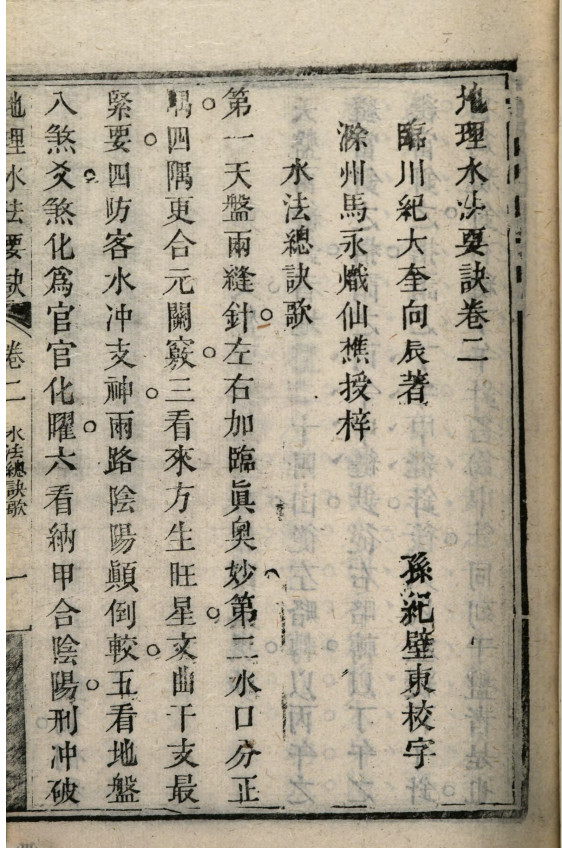 地理水法要訣卷二
臨川紀大奎向辰著　孫紀壁東校字
滁州馬永熾仙樵授梓
水法總訣歌
第一天盤兩縫針。左右加臨眞奧妙第二水口分正
隅。四隅更合元關竅。三看來方生旺星。文曲干支最
緊要。四防客水冲支神。兩路陰陽顚倒較。五看地盤
八煞爻煞化爲官官化曜。六看納甲合陰陽。刑冲破
地理水法要訣　卷二　水法總訣歌　一